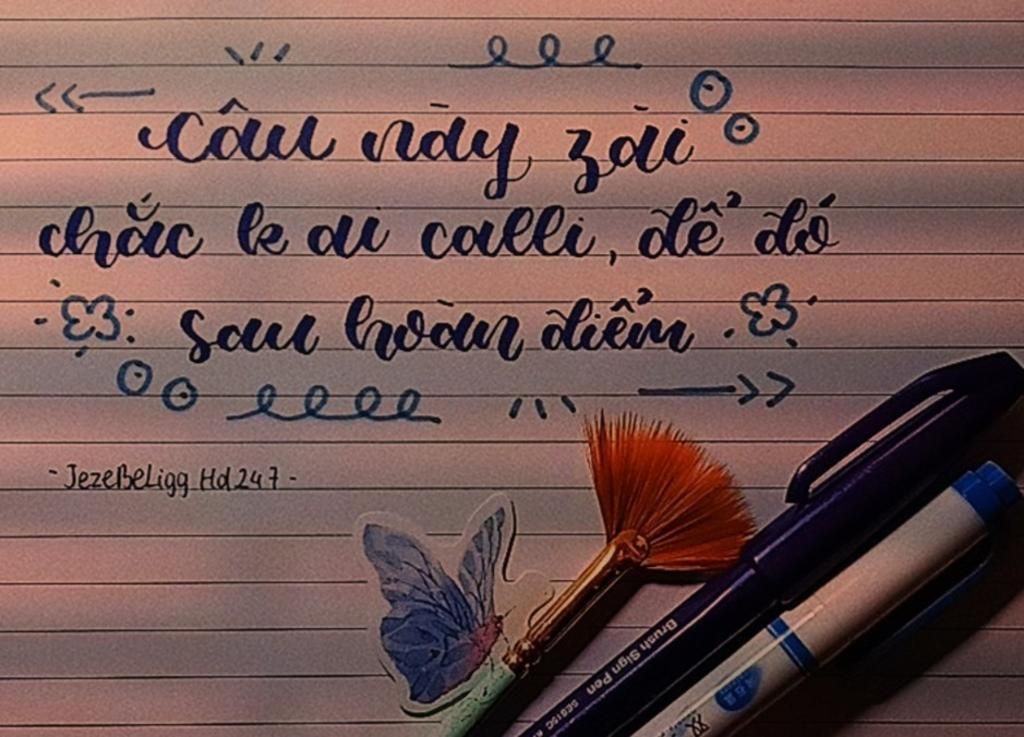 Câu này zài
chắc k di calli, để đó
sau hoàn điểm
- JezeBeLigg Hd247 -
Brush Sign Pen
SES15C